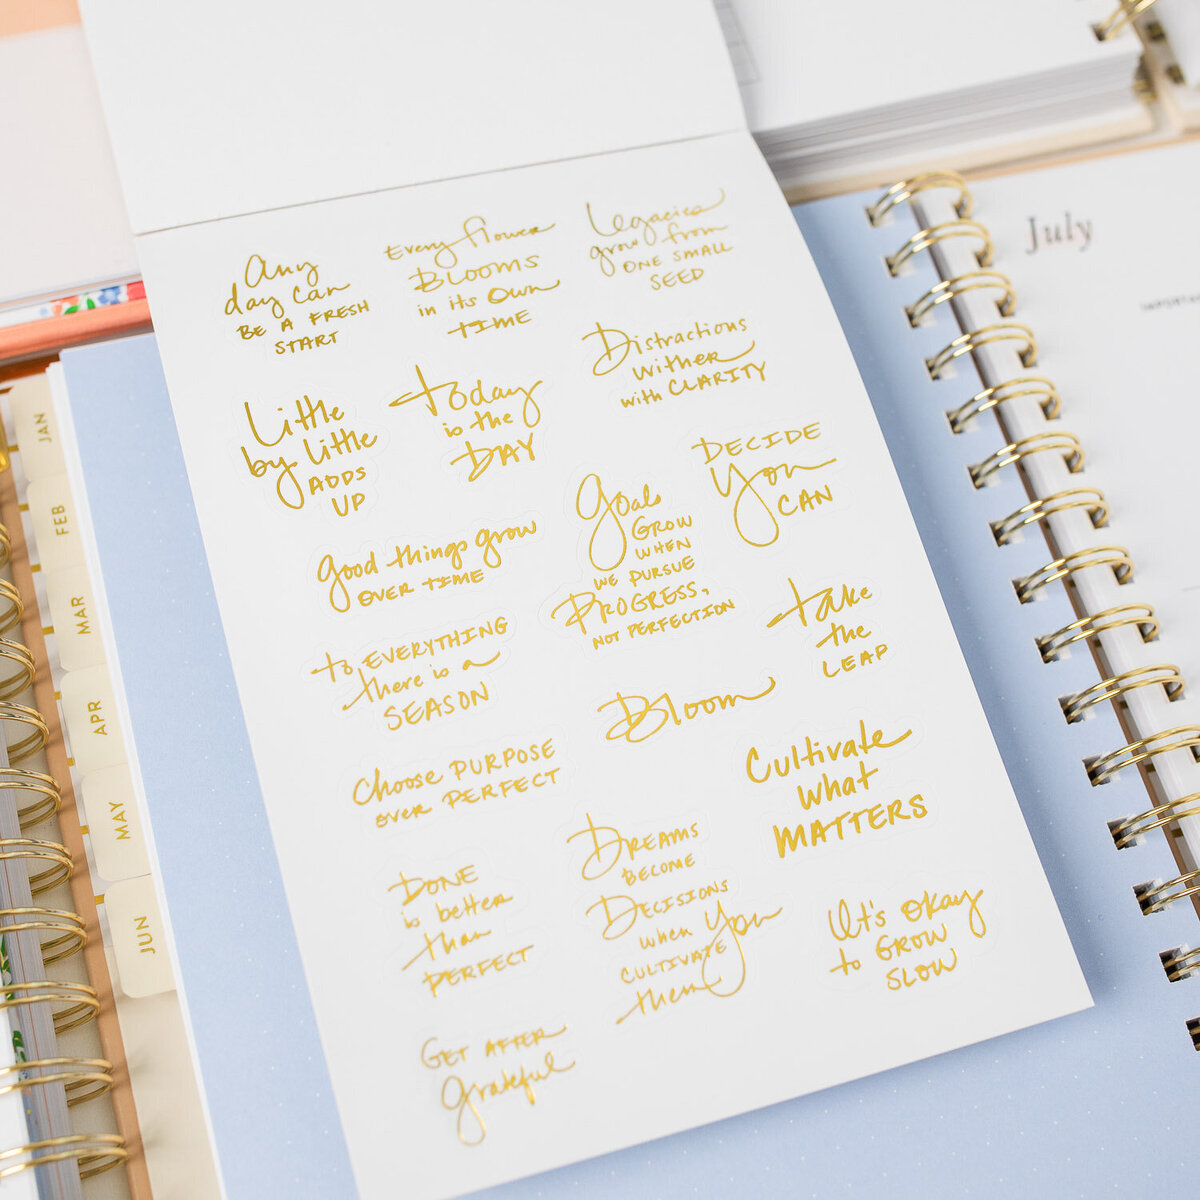 Any
day can
BE A FRESH
START
Every flower
BLOOMS
in its own
TIME
Legacies
grow from
ONE SMALL
SEED
Distractions
wither
with CLARITY
Little
by little
ADDS
UP
today
is the
DAY
DECIDE
You
CAN
Goals
GROW
WHEN
WE PURSUE
PROGRESS,
NOT PERFECTION
Good things grow
OVER TIME
take
the
LEAP
to EVERYTHING
there is a
SEASON
Bloom
Choose PURPOSE
over PERFECT
Cultivate
what
MATTERS
DREAMS
BECOME
DECISIONS
when You
CULTIVATE
them
DONE
is better
than
PERFECT
It's okay
to GROW
SLOW
GET AFTER
grateful
JAN
FEB
MAR
APR
MAY
JUN
July